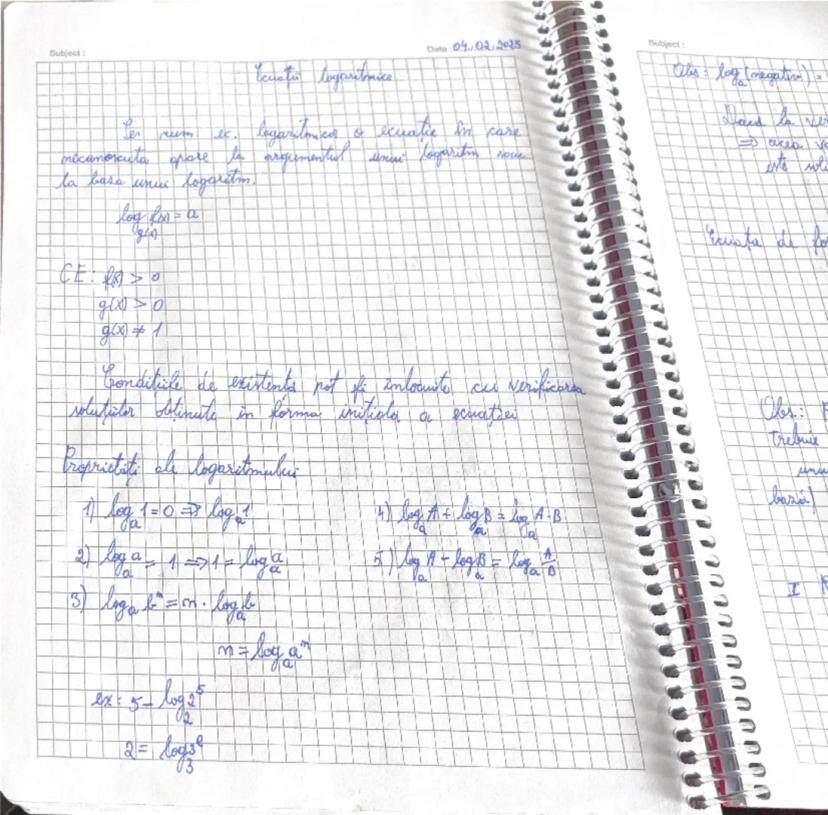 Subject :
Data 04.02.2025
Ecuații logaritmice
Se num. ec. logaritmică o ecuație în care
necunoscuta apare la argumentul unui logaritm sau
la baza unui logaritm.
log_{g(x)} f(x) = a
CE: f(x) > 0
g(x) > 0
g(x) ≠ 1
Condițiile de existență pot fi înlocuite cu verificarea
soluțiilor obținute în forma inițială a ecuației
Proprietăți ale logaritmului
1) log_a 1 = 0 ⇒ log_a 1
2) log_a a = 1 ⇒ 1 = log_a a
3) log_a b^n = n · log_a b
n = log_a a^n
ex: 5 - log_2 2^5
2 = log_3 3^2
4) log_a A + log_a B = log_a A·B
5) log_a A - log_a B = log_a A/B
Subject :
Obs: log_a (negativ) =
Dacă la
⇒ acea
este
Ecuația de
Obs.:
trebuie
bază)
I